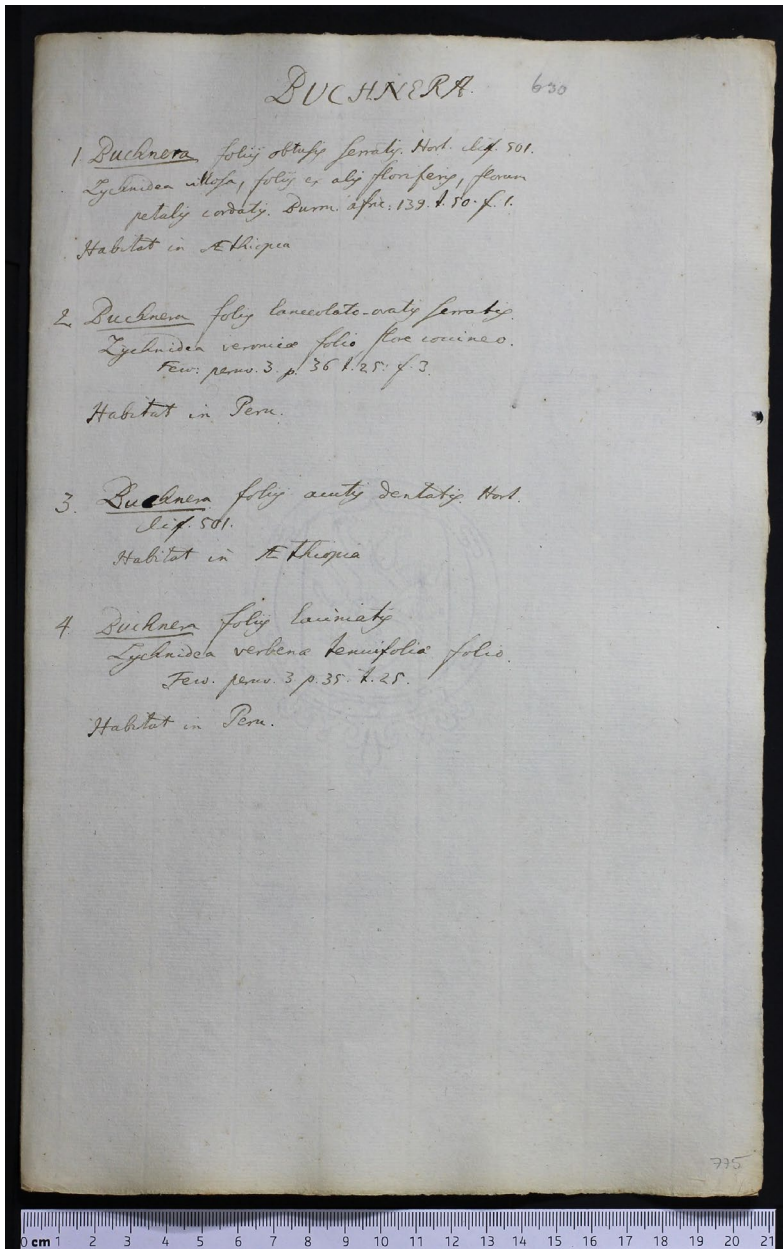 BUCHNERA. 630
1. Buchnera foliis obtusis serratis. Hort. clif. 501.
Lychnidea villosa, foliis ex alis floriferis, florum
petalis cordatis. Burm. afric: 139. t. 50. f. 1.
Habitat in Æthiopia
2. Buchnera foliis lanceolato-ovatis serratis.
Lychnidea veronicæ folio flore coccineo.
Few: peruv. 3. p. 36 t. 25. f. 3.
Habitat in Peru.
3. Buchnera foliis acutis dentatis. Hort.
clif 501.
Habitat in Æthiopia
4. Buchnera foliis laciniatis
Lychnidea verbenæ tenuifoliæ folio.
Few. peruv. 3. p. 35. t. 25.
Habitat in Peru.
775
0 cm 1 2 3 4 5 6 7 8 9 10 11 12 13 14 15 16 17 18 19 20 21